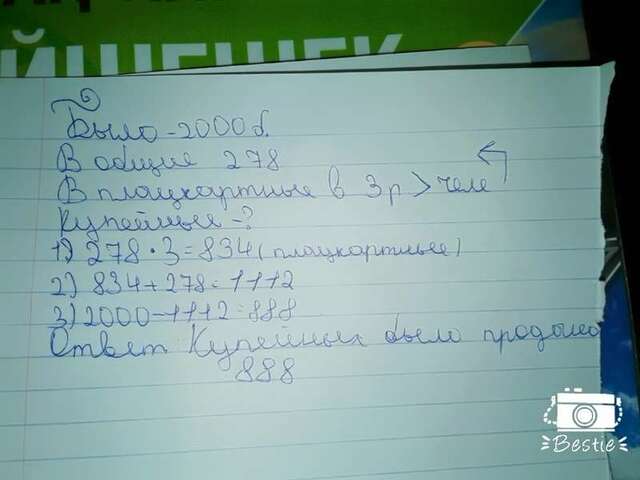 ЙЧЕШЕК
Было - 2000 б.
В общие 278
В плацкартные в 3 р > чем
Купейные - ?
1) 278 · 3 = 834 (плацкартные)
2) 834 + 278 = 1112
3) 2000 - 1112 = 888
Ответ Купейных было продано
888
Bestie